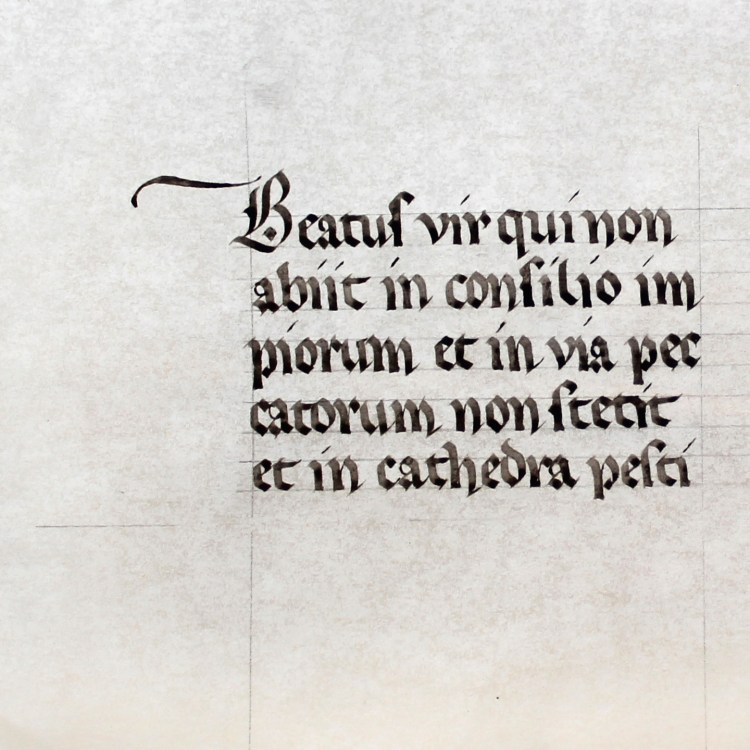 Beatuſ vir qui non
abiit in conſilio im
piorum et in via pec
catorum non ſtetit
et in cathedra peſti